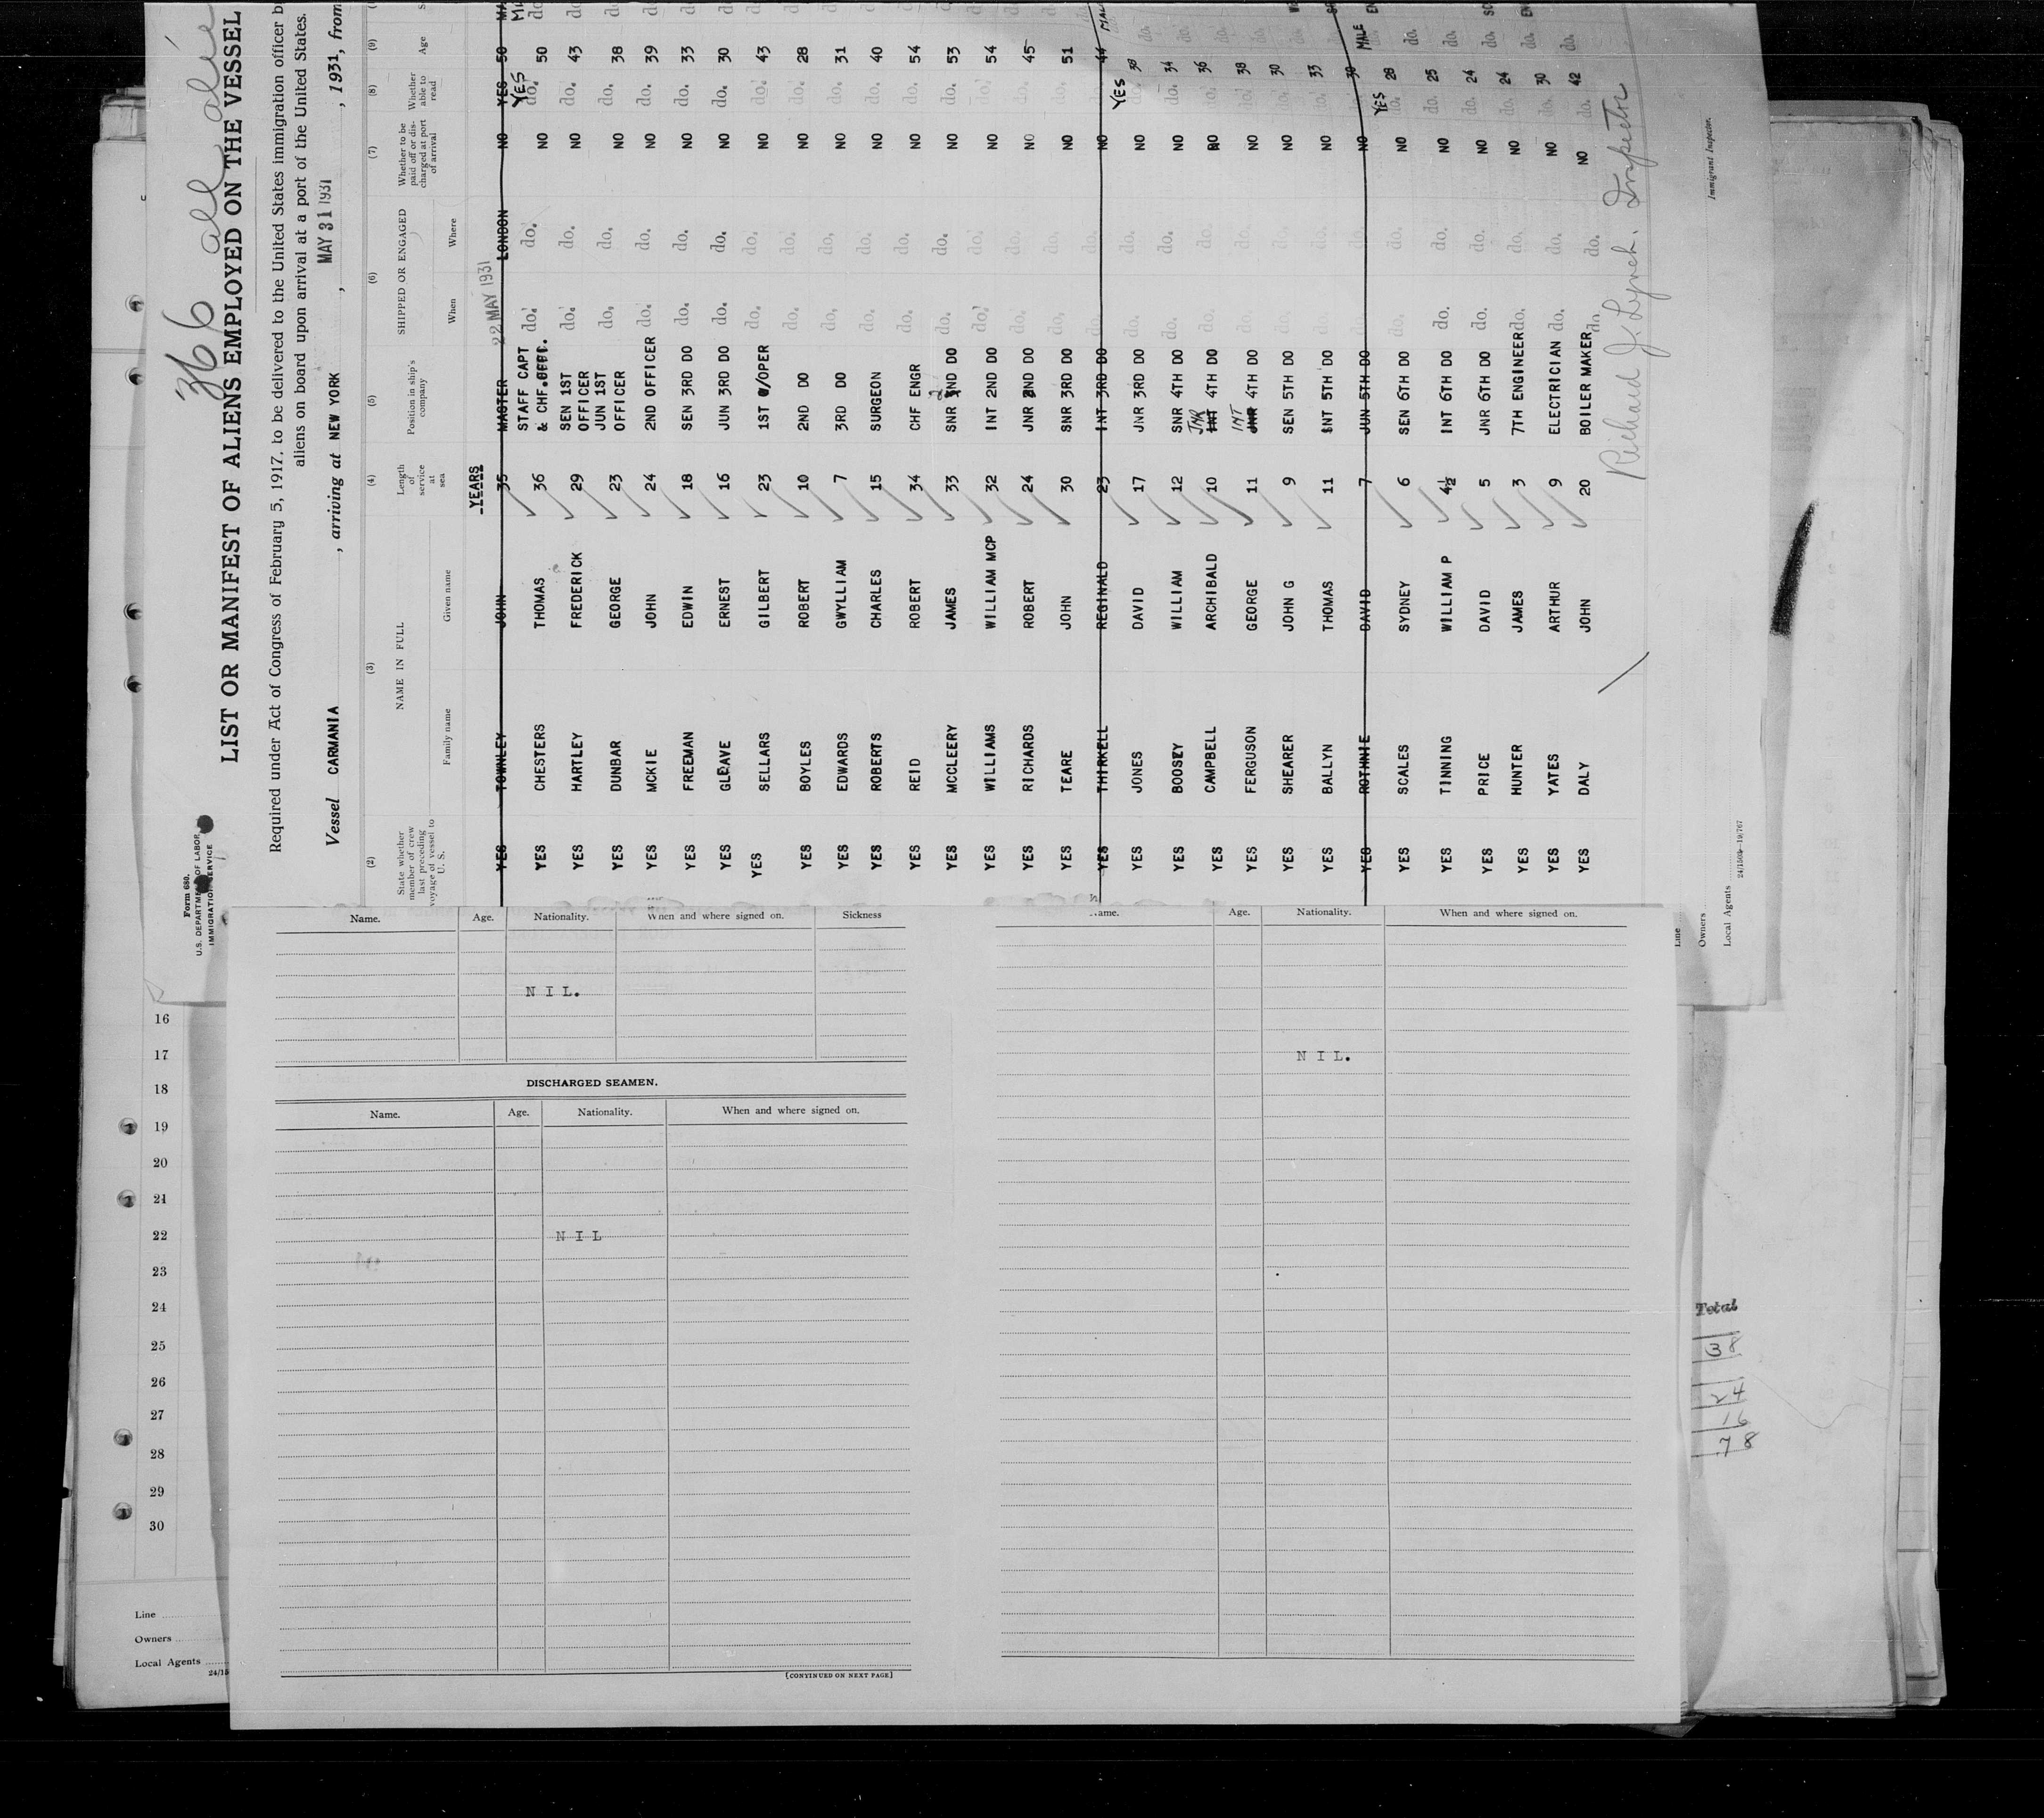 366 all alie
LIST OR MANIFEST OF ALIENS EMPLOYED ON THE VESSEL
Form 680.
U.S. DEPARTMENT OF LABOR
IMMIGRATION SERVICE
Required under Act of Congress of February 5, 1917, to be delivered to the United States immigration officer b
aliens on board upon arrival at a port of the United States.
Vessel CARMANIA , arriving at NEW YORK , MAY 31 1931 , 1931, from
(2) (3) (4) (5) (6) (7) (8) (9)
State whether member of crew last preceding voyage of vessel to U. S. NAME IN FULL Family name Given name Length of service at sea Position in ship's company SHIPPED OR ENGAGED When Where Whether to be paid off or discharged at port of arrival Whether able to read Age
YEARS 22 MAY 1931
YES TOWNLEY JOHN 35 MASTER LONDON NO YES 50 MA
YES CHESTERS THOMAS 36 STAFF CAPT & CHF.OFFC. do. do. NO YES do. 50
YES HARTLEY FREDERICK 29 SEN 1ST OFFICER do. do. NO do. 43 do
YES DUNBAR GEORGE 23 JUN 1ST OFFICER do. do. NO do. 38 do
YES MCKIE JOHN 24 2ND OFFICER do. do. NO do. 39 do
YES FREEMAN EDWIN 18 SEN 3RD DO do. do. NO do. 33 do
YES GLEAVE ERNEST 16 JUN 3RD DO do. do. NO do. 30 do
YES SELLARS GILBERT 23 1ST W/OPER do. do. NO do. 43 do
YES BOYLES ROBERT 10 2ND DO do. do. NO do. 28 do
YES EDWARDS GWYLLIAM 7 3RD DO do. do. NO do. 31 do
YES ROBERTS CHARLES 15 SURGEON do. do. NO do. 40
YES REID ROBERT 34 CHF ENGR do. do. NO do. 54
YES MCCLEERY JAMES 33 SNR 2ND DO do. do. NO do. 53
YES WILLIAMS WILLIAM MCP 32 INT 2ND DO do. do. NO do. 54
YES RICHARDS ROBERT 24 JNR 2ND DO do. do. NO do. 45
YES TEARE JOHN 30 SNR 3RD DO do. do. NO do. 51
YES THIRKELL REGINALD 23 INT 3RD DO do. do. NO do. 44
YES JONES DAVID 17 JNR 3RD DO do. do. NO YES do. 38 do.
YES BOOSEY WILLIAM 12 SNR 4TH DO do. do. NO do. 34 do.
YES CAMPBELL ARCHIBALD 10 JNR 4TH DO do. do. NO do. 36 do.
YES FERGUSON GEORGE 11 INT 4TH DO do. do. NO do. 38 do.
YES SHEARER JOHN G 9 SEN 5TH DO do. do. NO do. 30 do.
YES BALLYN THOMAS 11 INT 5TH DO do. do. NO do. 33 do.
YES ROTHNIE DAVID 7 JUN 5TH DO do. do. NO 30 MALE
YES SCALES SYDNEY 6 SEN 6TH DO do. do. NO YES do. 28 do.
YES TINNING WILLIAM P 4½ INT 6TH DO do. do. NO do. 25 do.
YES PRICE DAVID 5 JNR 6TH DO do. do. NO do. 24 do.
YES HUNTER JAMES 3 7TH ENGINEER do. do. NO do. 24 do.
YES YATES ARTHUR 9 ELECTRICIAN do. do. NO do. 30 do.
YES DALY JOHN 20 BOILER MAKER do. do. NO do. 42 do.
Richard J. Lynch. Inspector
Immigrant Inspector.
Line
Owners
Local Agents
Name. Age. Nationality. When and where signed on. Sickness
NIL.
DISCHARGED SEAMEN.
Name. Age. Nationality. When and where signed on.
NIL
[CONTINUED ON NEXT PAGE]
ame. Age. Nationality. When and where signed on.
NIL.
16
17
18
19
20
21
22
23
24
25
26
27
28
29
30
Line
Owners
Local Agents
24/15
Total
38
24
16
78